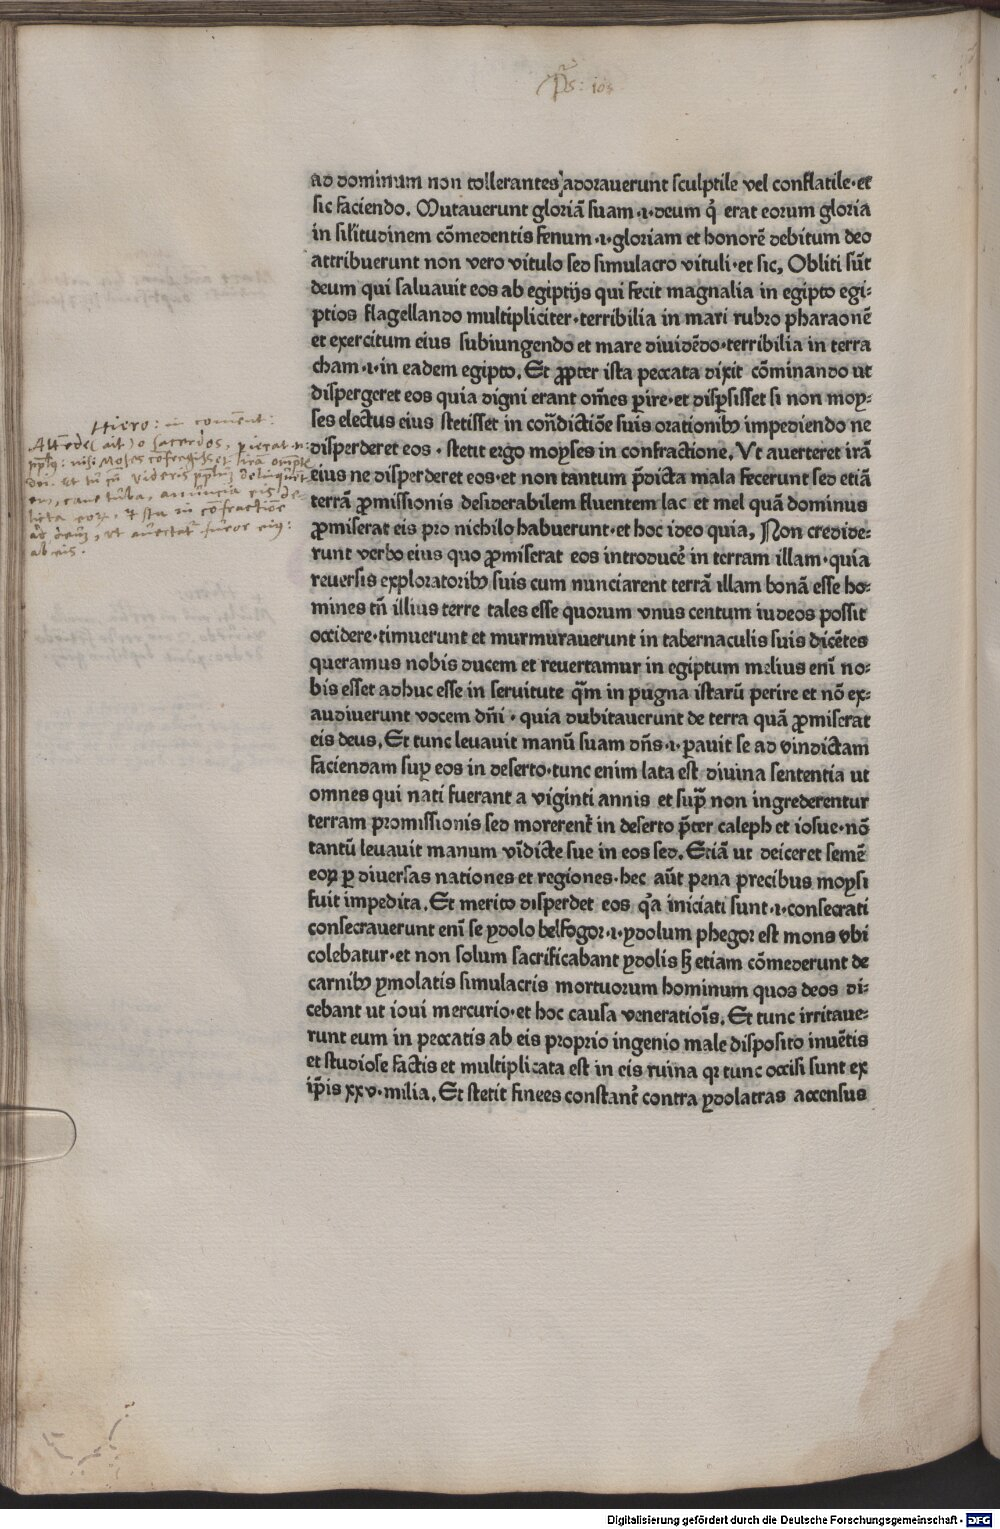 Ps: 105
ad dominum non tollerantes adorauerunt sculptile vel conflatile·et
sic faciendo. Mutauerunt gloriā suam ·i·deum q̇ erat eorum gloria
in sil'itudinem cōmedentis fenum·i·gloriam et honorē debitum deo
attribuerunt non vero vitulo sed simulacro vituli·et sic, Obliti sūt
deum qui saluauit eos ab egiptijs qui fecit magnalia in egipto egi-
ptios flagellando multipliciter·terribilia in mari rubro pharaonē
et exercitum eius subiungendo et mare diuidēdo·terribilia in terra
cham·i·in eadem egipto. Et ꝓpter ista peccata dixit cōminando ut
dispergeret eos quia digni erant om̄es ꝑire·et disꝑsisset si non moy-
ses electus eius stetisset in con̄dictiōe suis orationibꝰ impediendo ne
disperderet eos · stetit ergo moyses in confractione. Vt auerteret irā
eius ne disperderet eos·et non tantum p̄dicta mala fecerunt sed etiā
terrā ꝓmissionis desiderabilem fluentem lac et mel quā dominus
ꝓmiserat eis pro nichilo habuerunt·et hoc ideo quia, Non credide-
runt verbo eius quo ꝓmiserat eos introducē in terram illam·quia
reuersis exploratoribꝰ suis cum nunciarent terrā illam bonā esse ho-
mines tn̄ illius terre tales esse quorum vnus centum iudeos possit
occidere·timuerunt et murmurauerunt in tabernaculis suis dicētes
queramus nobis ducem et reuertamur in egiptum melius enī no-
bis esset adhuc esse in seruitute q̄m in pugna istarū perire et nō ex-
audiuerunt vocem dn̄i · quia dubitauerunt de terra quā ꝓmiserat
eis deus. Et tunc leuauit manū suam dn̄s·i·ꝑauit se ad vindictam
faciendam suꝑ eos in deserto·tunc enim lata est diuina sententia ut
omnes qui nati fuerant a viginti annis et sup̄ non ingrederentur
terram promissionis sed morerent' in deserto p̄ter caleph et iosue·nō
tantū leuauit manum vīdicte sue in eos sed. Etiā ut deiceret semē
eoꝝ ꝑ diuersas nationes et regiones·hec aūt pena precibus moysi
fuit impedita. Et merito disperdet eos q'a iniciati sunt·i·consecrati
consecrauerunt enī se ydolo belfogor·i·ydolum phegor est mons vbi
colebatur·et non solum sacrificabant ydolis sꝫ etiam cōmederunt de
carnibꝰ ymolatis simulacris mortuorum hominum quos deos di-
cebant ut ioui mercurio·et hoc causa veneratiōis. Et tunc irritaue-
runt eum in peccatis ab eis proprio ingenio male disposito inuētis
et studiose factis et multiplicata est in eis ruina qꝛ tunc occisi sunt ex
ip̄is xxv·milia. Et stetit finees constant' contra ydolatras accensus
Hiero: in coment:
Attēde (ait) o sacerdos, pierat
ppls: nisi Moses cōfregisset irā
dei. Et tu cū videris pplm delinquēt
em, cane tuba, anūncia eis de-
licta eorꝫ, et sta in cōfractiōe
ad deum, ut auertat furor eius
ab eis.
Digitalisierung gefördert durch die Deutsche Forschungsgemeinschaft - DFG